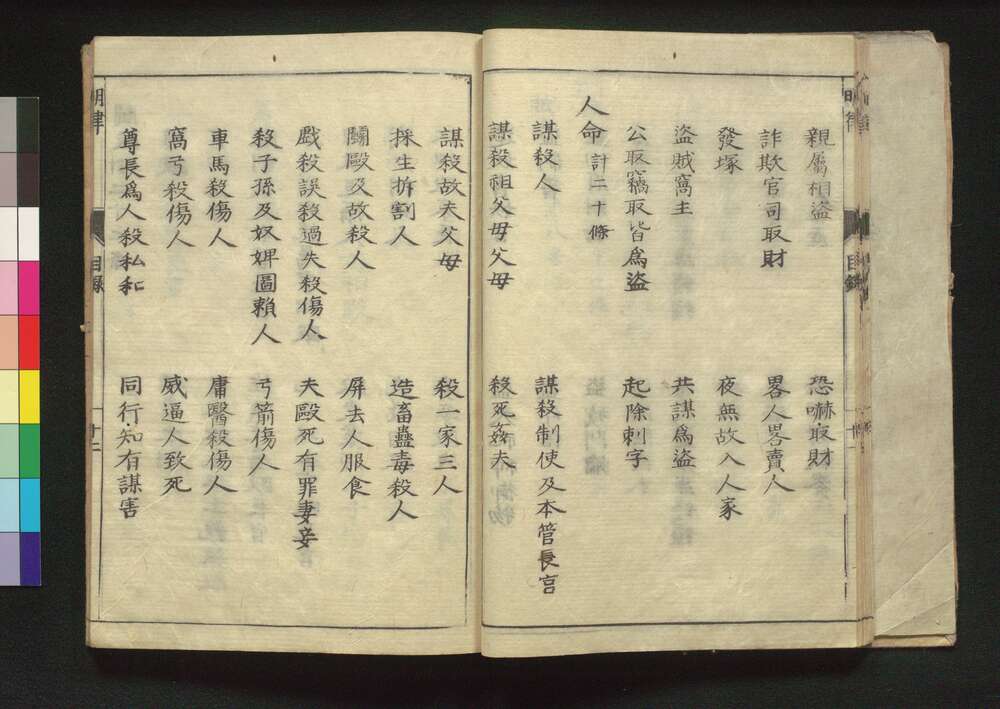 親屬相盜　恐嚇取財
詐欺官司取財　畧人畧賣人
發塚　夜無故入人家
盜賊窩主　共謀爲盜
公取竊取皆爲盜　起除刺字
人命計二十條
謀殺人　謀殺制使及本管長官
謀殺祖父母父母　殺死姦夫
謀殺故夫父母　殺一家三人
採生拆割人　造畜蠱毒殺人
鬭毆及故殺人　屏去人服食
戲殺誤殺過失殺傷人　夫毆死有罪妻妾
殺子孫及奴婢圖賴人　弓箭傷人
車馬殺傷人　庸醫殺傷人
窩弓殺傷人　威逼人致死
尊長爲人殺私和　同行知有謀害
明律　目錄　十二